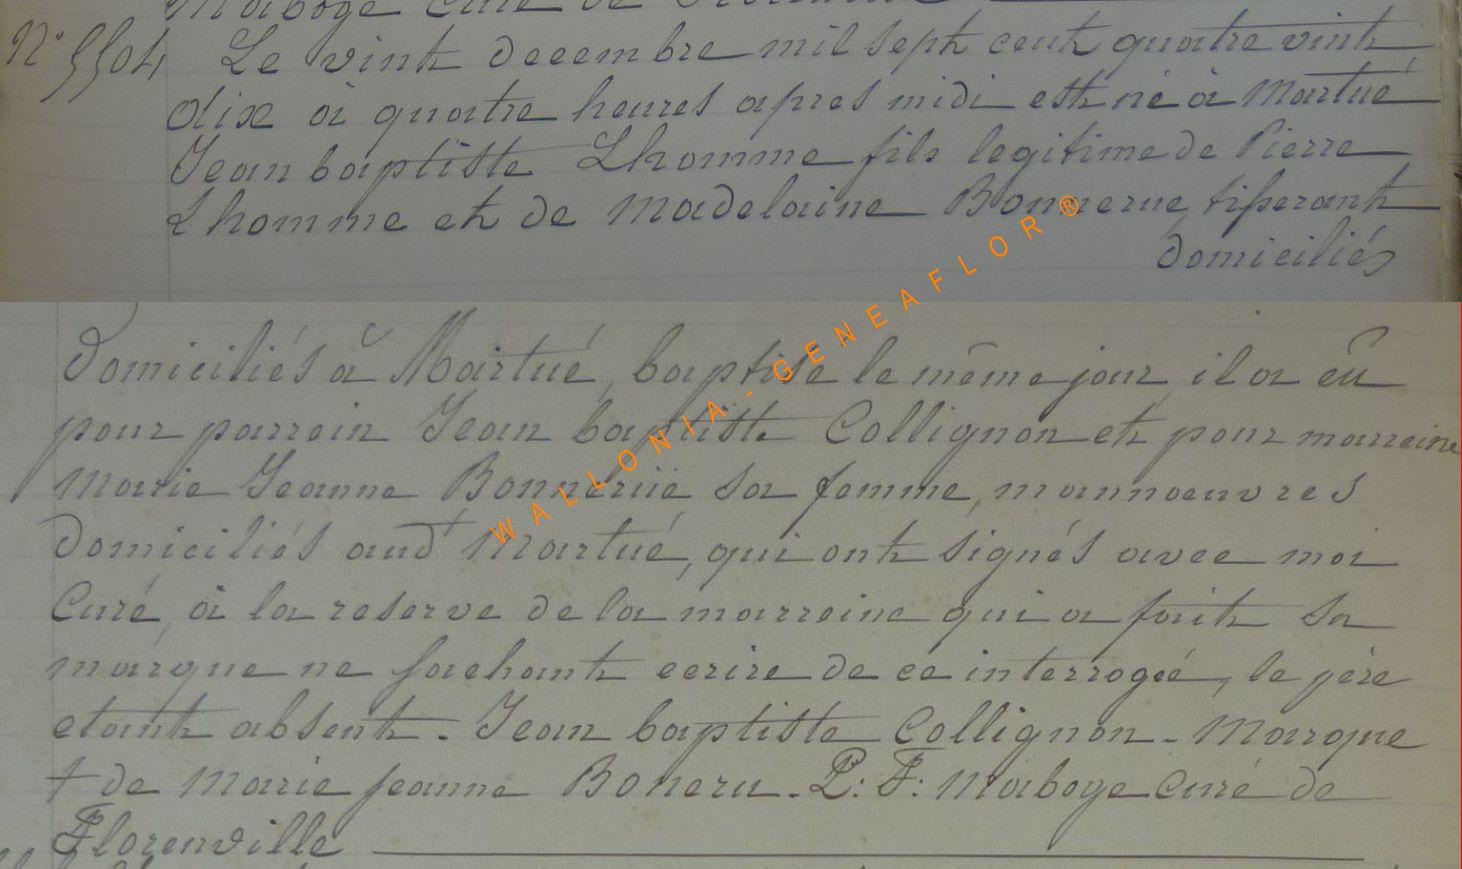 Maboge Curé de
N° 5504 Le vint decembre mil sept cent quatre vint
dix à quatre heures apres midi est né à Martué
Jean baptiste Lhomme fils legitime de Pierre
Lhomme et de Madelaine Bonnerue, tisserant
domiciliés
domiciliés à Martué, baptisé le même jour, il a eû
pour parrain Jean baptiste Collignon et pour marreine
Marie Jeanne Bonneruë sa femme, mannoeuvres
domiciliés aud^t Martué, qui ont signés avec moi
Curé, à la reserve de la marreine qui a fait sa
marque ne sachant ecrire de ce interrogée, le père
etant absent. Jean baptiste Collignon - Marque
† de Marie jeanne Boneru. P: F: Maboge Curé de
Florenville
WALLONIA-GENEAFLOR®